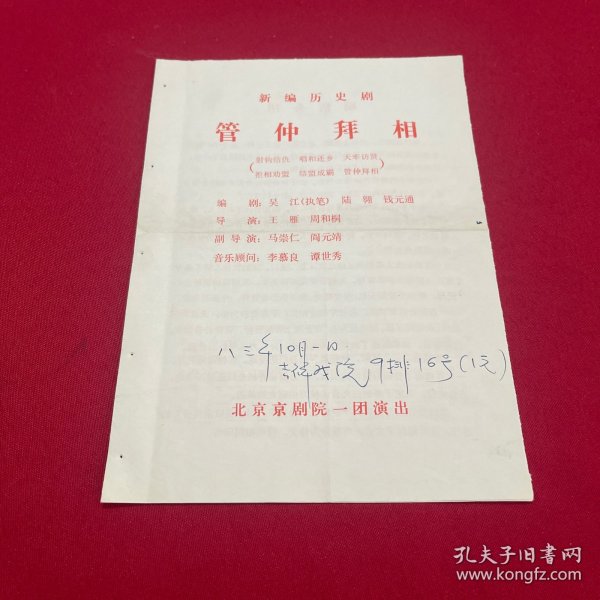 新编历史剧
管仲拜相
(射钩结仇 唱和还乡 夫车访贤
拒相劝盟 结盟成霸 管仲拜相)
编 剧：吴 江(执笔) 陆 翱 钱元通
导 演：王 雁 周和桐
副导演：马崇仁 阎元靖
音乐顾问：李慕良 谭世秀
八三年10月一日.
吉祥戏院 9排16号(1元)
北京京剧院一团演出
孔夫子旧书网
www.kongfz.com